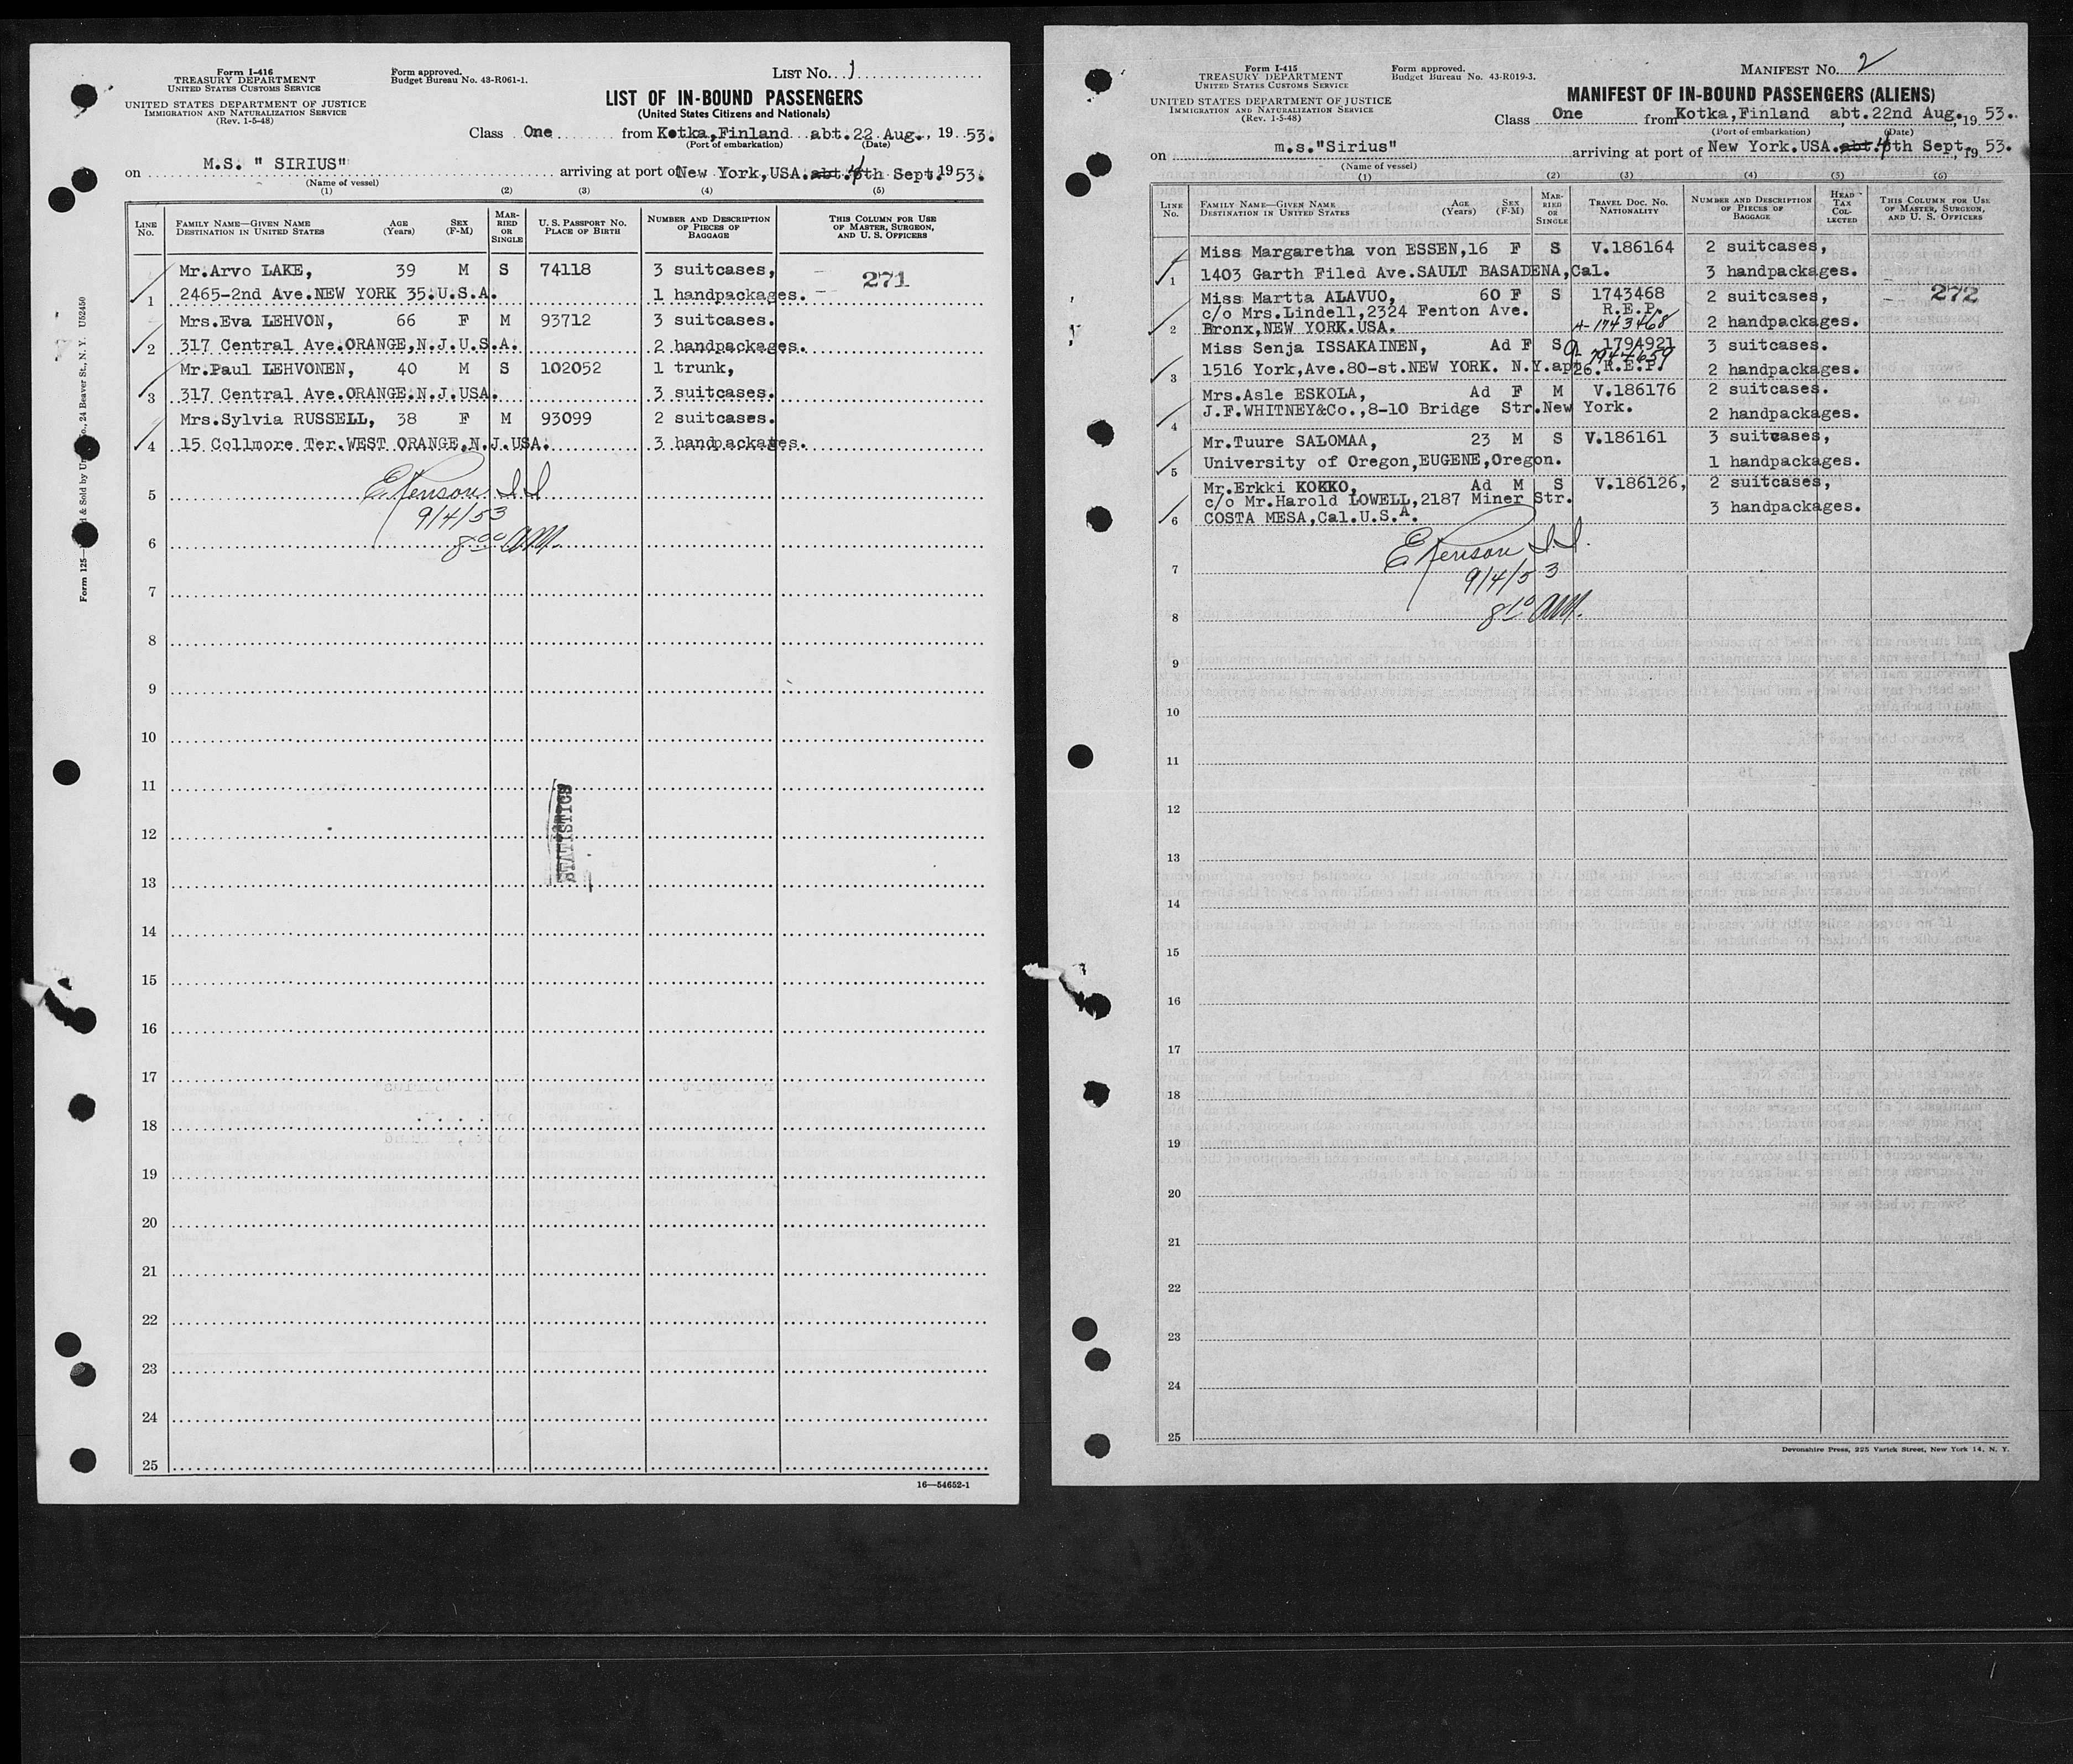 Form I-416
TREASURY DEPARTMENT
UNITED STATES CUSTOMS SERVICE
UNITED STATES DEPARTMENT OF JUSTICE
IMMIGRATION AND NATURALIZATION SERVICE
(Rev. 1-5-48)
Form approved.
Budget Bureau No. 43-R061-1.
LIST NO. 1
LIST OF IN-BOUND PASSENGERS
(United States Citizens and Nationals)
Class One from Kotka,Finland abt.22 Aug., 19 53.
(Port of embarkation) (Date)
on M.S. " SIRIUS" arriving at port of New York,USA. abt. 4th Sept. 19 53.
(Name of vessel)
(1) (2) (3) (4) (5)
LINE NO. FAMILY NAME—GIVEN NAME DESTINATION IN UNITED STATES AGE (Years) SEX (F-M) MARRIED OR SINGLE U. S. PASSPORT NO. PLACE OF BIRTH NUMBER AND DESCRIPTION OF PIECES OF BAGGAGE THIS COLUMN FOR USE OF MASTER, SURGEON, AND U. S. OFFICERS
Mr.Arvo LAKE, 39 M S 74118 3 suitcases, 271
1 2465-2nd Ave.NEW YORK 35.U.S.A. 1 handpackages.
Mrs.Eva LEHVON, 66 F M 93712 3 suitcases.
2 317 Central Ave.ORANGE,N.J.U.S.A. 2 handpackages.
Mr.Paul LEHVONEN, 40 M S 102052 1 trunk,
3 317 Central Ave.ORANGE.N.J.USA. 3 suitcases.
Mrs.Sylvia RUSSELL, 38 F M 93099 2 suitcases.
4 15 Collmore Ter.WEST ORANGE,N.J.USA. 3 handpackages.
5
9/4/53
6
8 00 AM.
7
8
9
10
11
12
STATISTICS
13
14
15
16
17
18
19
20
21
22
23
24
25
16—54652-1
Form I-415
TREASURY DEPARTMENT
UNITED STATES CUSTOMS SERVICE
UNITED STATES DEPARTMENT OF JUSTICE
IMMIGRATION AND NATURALIZATION SERVICE
(Rev. 1-5-48)
Form approved.
Budget Bureau No. 43-R019-3.
MANIFEST NO. 2
MANIFEST OF IN-BOUND PASSENGERS (ALIENS)
Class One from Kotka,Finland abt.22nd Aug. 19 53.
(Port of embarkation) (Date)
on m.s."Sirius" arriving at port of New York.USA. abt. 4th Sept. 19 53.
(Name of vessel)
(1) (2) (3) (4) (5) (6)
LINE NO. FAMILY NAME—GIVEN NAME DESTINATION IN UNITED STATES AGE (Years) SEX (F-M) MARRIED OR SINGLE TRAVEL DOC. NO. NATIONALITY NUMBER AND DESCRIPTION OF PIECES OF BAGGAGE HEAD TAX COLLECTED THIS COLUMN FOR USE OF MASTER, SURGEON, AND U. S. OFFICERS
Miss Margaretha von ESSEN,16 F S V.186164 2 suitcases,
1 1403 Garth Filed Ave.SAULT BASADENA,Cal. 3 handpackages.
Miss Martta ALAVUO, 60 F S 1743468 2 suitcases, 272
c/o Mrs.Lindell,2324 Fenton Ave. R.E.P.
2 Bronx,NEW YORK.USA. A-1743468 2 handpackages.
Miss Senja ISSAKAINEN, Ad F S 1794921 3 suitcases.
3 1516 York,Ave.80-st.NEW YORK. N.Y.apt26. R.E.P. 2 handpackages.
Mrs.Asle ESKOLA, Ad F M V.186176 2 suitcases.
4 J.F.WHITNEY&Co.,8-10 Bridge Str.New York. 2 handpackages.
Mr.Tuure SALOMAA, 23 M S V.186161 3 suitcases,
5 University of Oregon,EUGENE,Oregon. 1 handpackages.
Mr.Erkki KOKKO, Ad M S V.186126, 2 suitcases,
c/o Mr.Harold LOWELL,2187 Miner Str. 3 handpackages.
6 COSTA MESA,Cal.U.S.A.
7
9/4/53
8
8 10 AM.
9
10
11
12
13
14
15
16
17
18
19
20
21
22
23
24
25
Devonshire Press, 225 Varick Street, New York 14, N. Y.